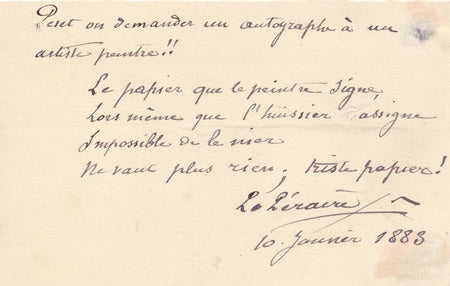 Peut on demander un autographe à un
artiste peintre!!
Le papier que le peintre signe,
Lors même que l'huissier l'assigne
Impossible de le nier
Ne vaut plus rien; triste papier!
10. Janvier 1883